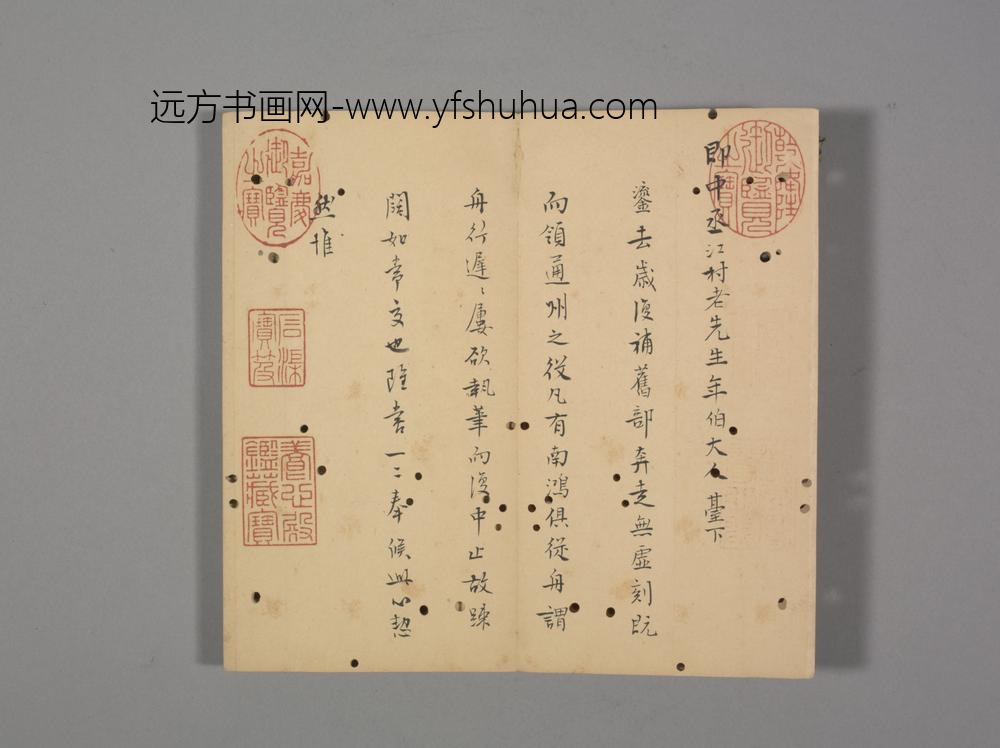 远方书画网-www.yfshuhua.com
即中丞江村老先生年伯大人臺下
鎏去歲復補舊部奔走無虛刻既
而領通州之役凡有南鴻俱從舟謂
舟行遲〻屢欲執筆而復中止故踈
闊如常交也雖嘗一二奉候此心愁
然惟
乾隆御覽之寶
嘉慶御覽之寶
石渠寶笈
養心殿鑑藏寶